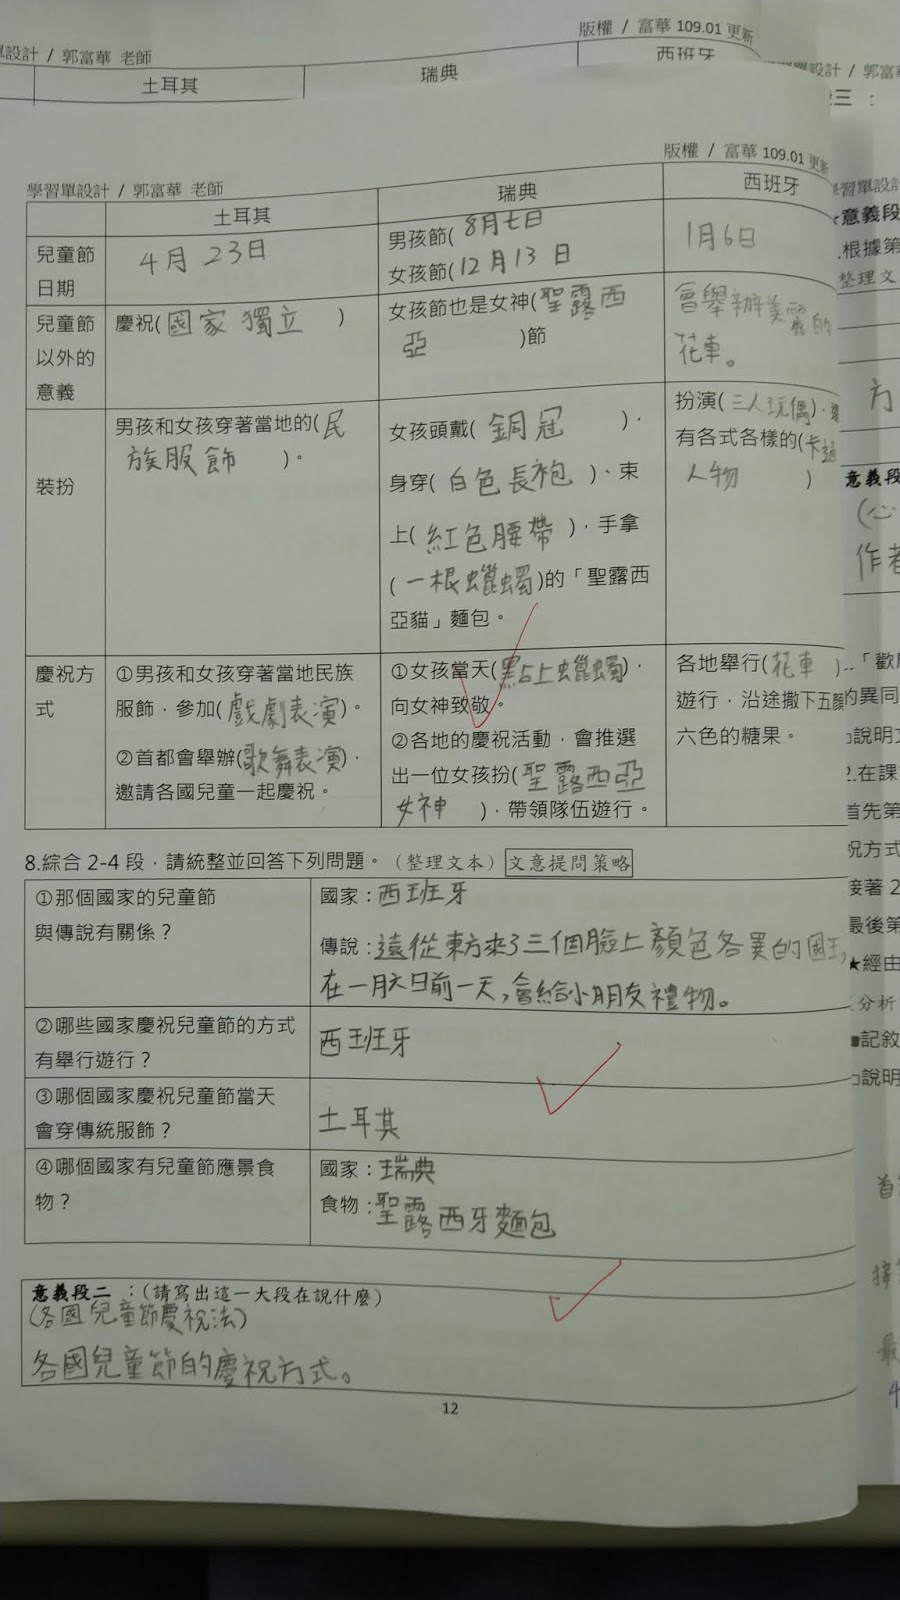 設計 / 郭富華 老師
版權 / 富華 109.01 更新
土耳其
瑞典
西班牙
版權 / 富華 109.01 更新
學習單設計 / 郭富華 老師
土耳其
瑞典
西班牙
兒童節
日期
4月 23日
男孩節( 8月七日
女孩節(12月13 日
1月6日
兒童節
以外的
意義
慶祝(國家 獨立 )
女孩節也是女神(聖露西
亞 )節
會舉辦美麗的
花車。
裝扮
男孩和女孩穿著當地的(民
族服飾 )。
女孩頭戴( 銅冠 ),
身穿( 白色長袍 )、束
上( 紅色腰帶 ),手拿
(一根蠟蠋)的「聖露西
亞貓」麵包。
扮演(三人玩偶),還
有各式各樣的(卡通
人物 )
慶祝方
式
①男孩和女孩穿著當地民族
服飾,參加(戲劇表演)。
②首都會舉辦(歌舞表演),
邀請各國兒童一起慶祝。
①女孩當天(點上蠟蠋),
向女神致敬。
②各地的慶祝活動,會推選
出一位女孩扮(聖露西亞
女神 ),帶領隊伍遊行。
各地舉行(花車 )
遊行,沿途撒下五顏
六色的糖果。
8.綜合 2-4 段,請統整並回答下列問題。(整理文本) 文意提問策略
①那個國家的兒童節
與傳說有關係?
國家:西班牙
傳說:遠從東方來了三個臉上顏色各異的國王,
在一月六日前一天,會給小朋友禮物。
②哪些國家慶祝兒童節的方式
有舉行遊行?
西班牙
③哪個國家慶祝兒童節當天
會穿傳統服飾?
土耳其
④哪個國家有兒童節應景食
物?
國家:瑞典
食物:聖露西牙麵包
意義段二 :(請寫出這一大段在說什麼)
(各國兒童節慶祝法)
各國兒童節的慶祝方式。
12
三 :
學習單設計
意義段
根據第
整理文
方
意義段
(心
作者
「歡
的異同
說明文
2.在課
首先第
祝方式
接著 2
最後第
★經由
分析
■記敘
說明
首
接
最